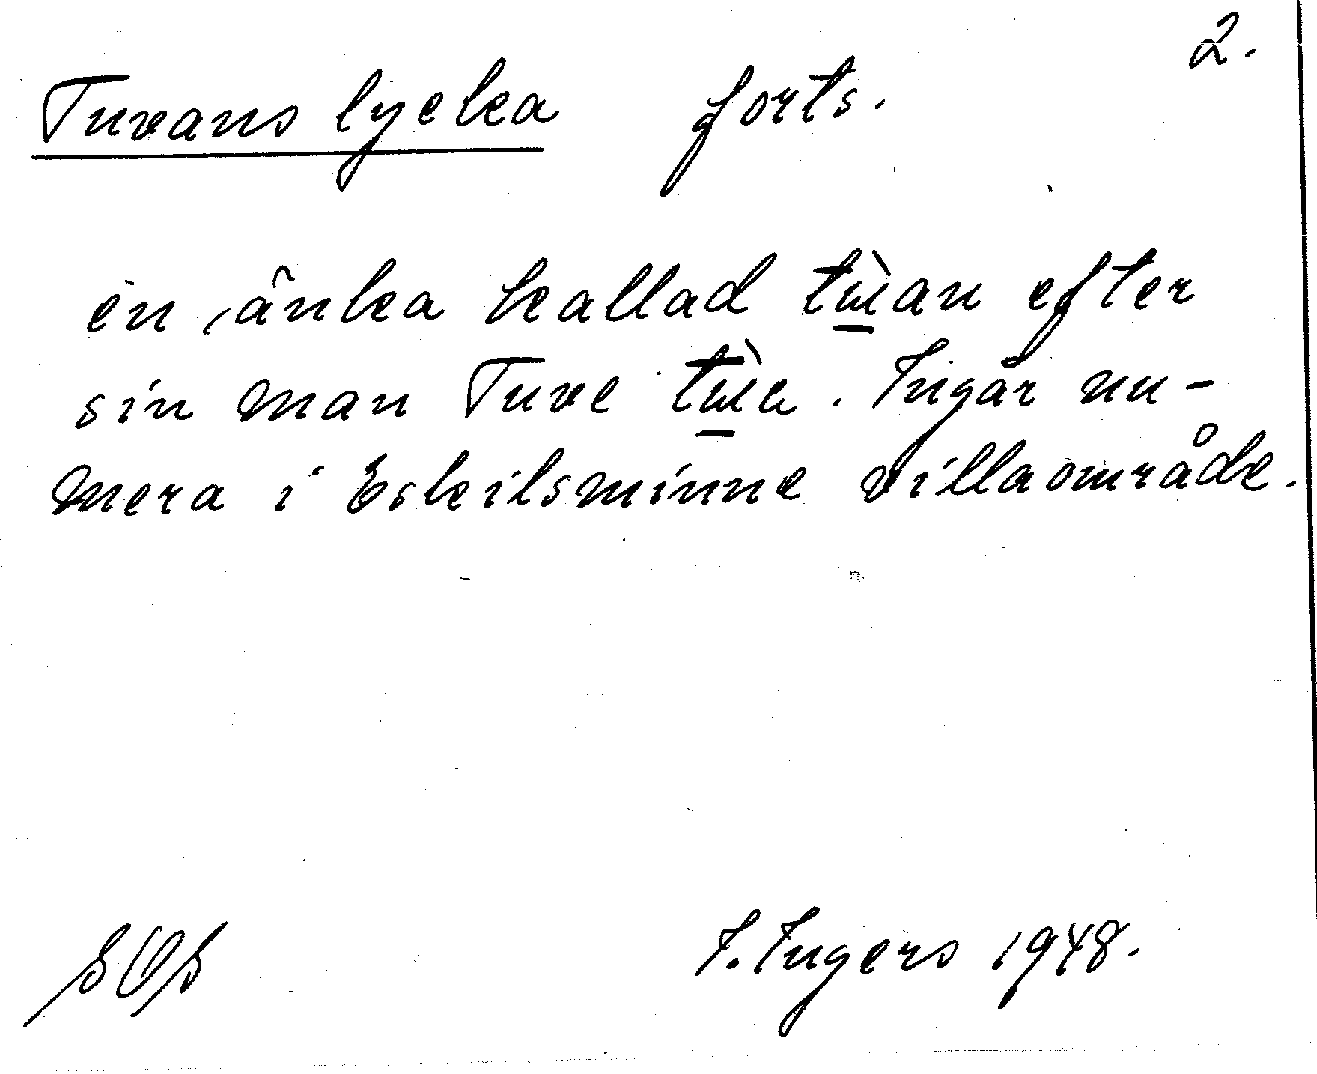 2.
Tuvans lycka forts.
en änka kallad tɯ̀an efter
sin man Tuve tɯ̀a. Ingår nu-
mera i Eskilsminne villaområde.
I. Ingers 1948.